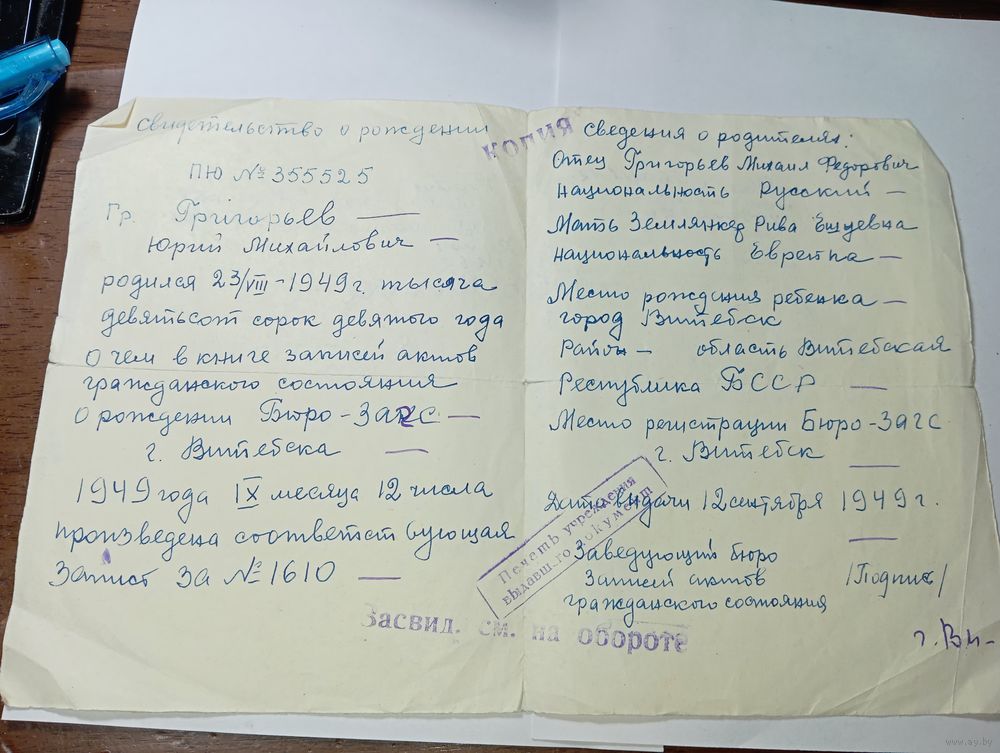 свидетельство о рождении
ПЮ № 355525
Гр. Григорьев —
Юрий Михайлович —
родился 23/VIII - 1949 г. тысяча
девятьсот сорок девятого года
о чем в книге записей актов
гражданского состояния
о рождении Бюро - ЗАГС —
г. Витебска —
1949 года IX месяца 12 числа
произведена соответствующая
запись за № 1610 —
копия
Сведения о родителях:
Отец Григорьев Михаил Федорович
национальность Русский —
Мать Рива
национальность Еврейка —
Место рождения ребенка —
город Витебск
Район — область Витебская
Республика БССР —
Место регистрации Бюро - ЗАГС
г. Витебск —
Дата выдачи 12 сентября 1949 г.
—
Печать учреждения
выдавшего документ
Заведующий бюро
записей актов /Подпись/
гражданского состояния
Засвид. см. на обороте
www.ay.by